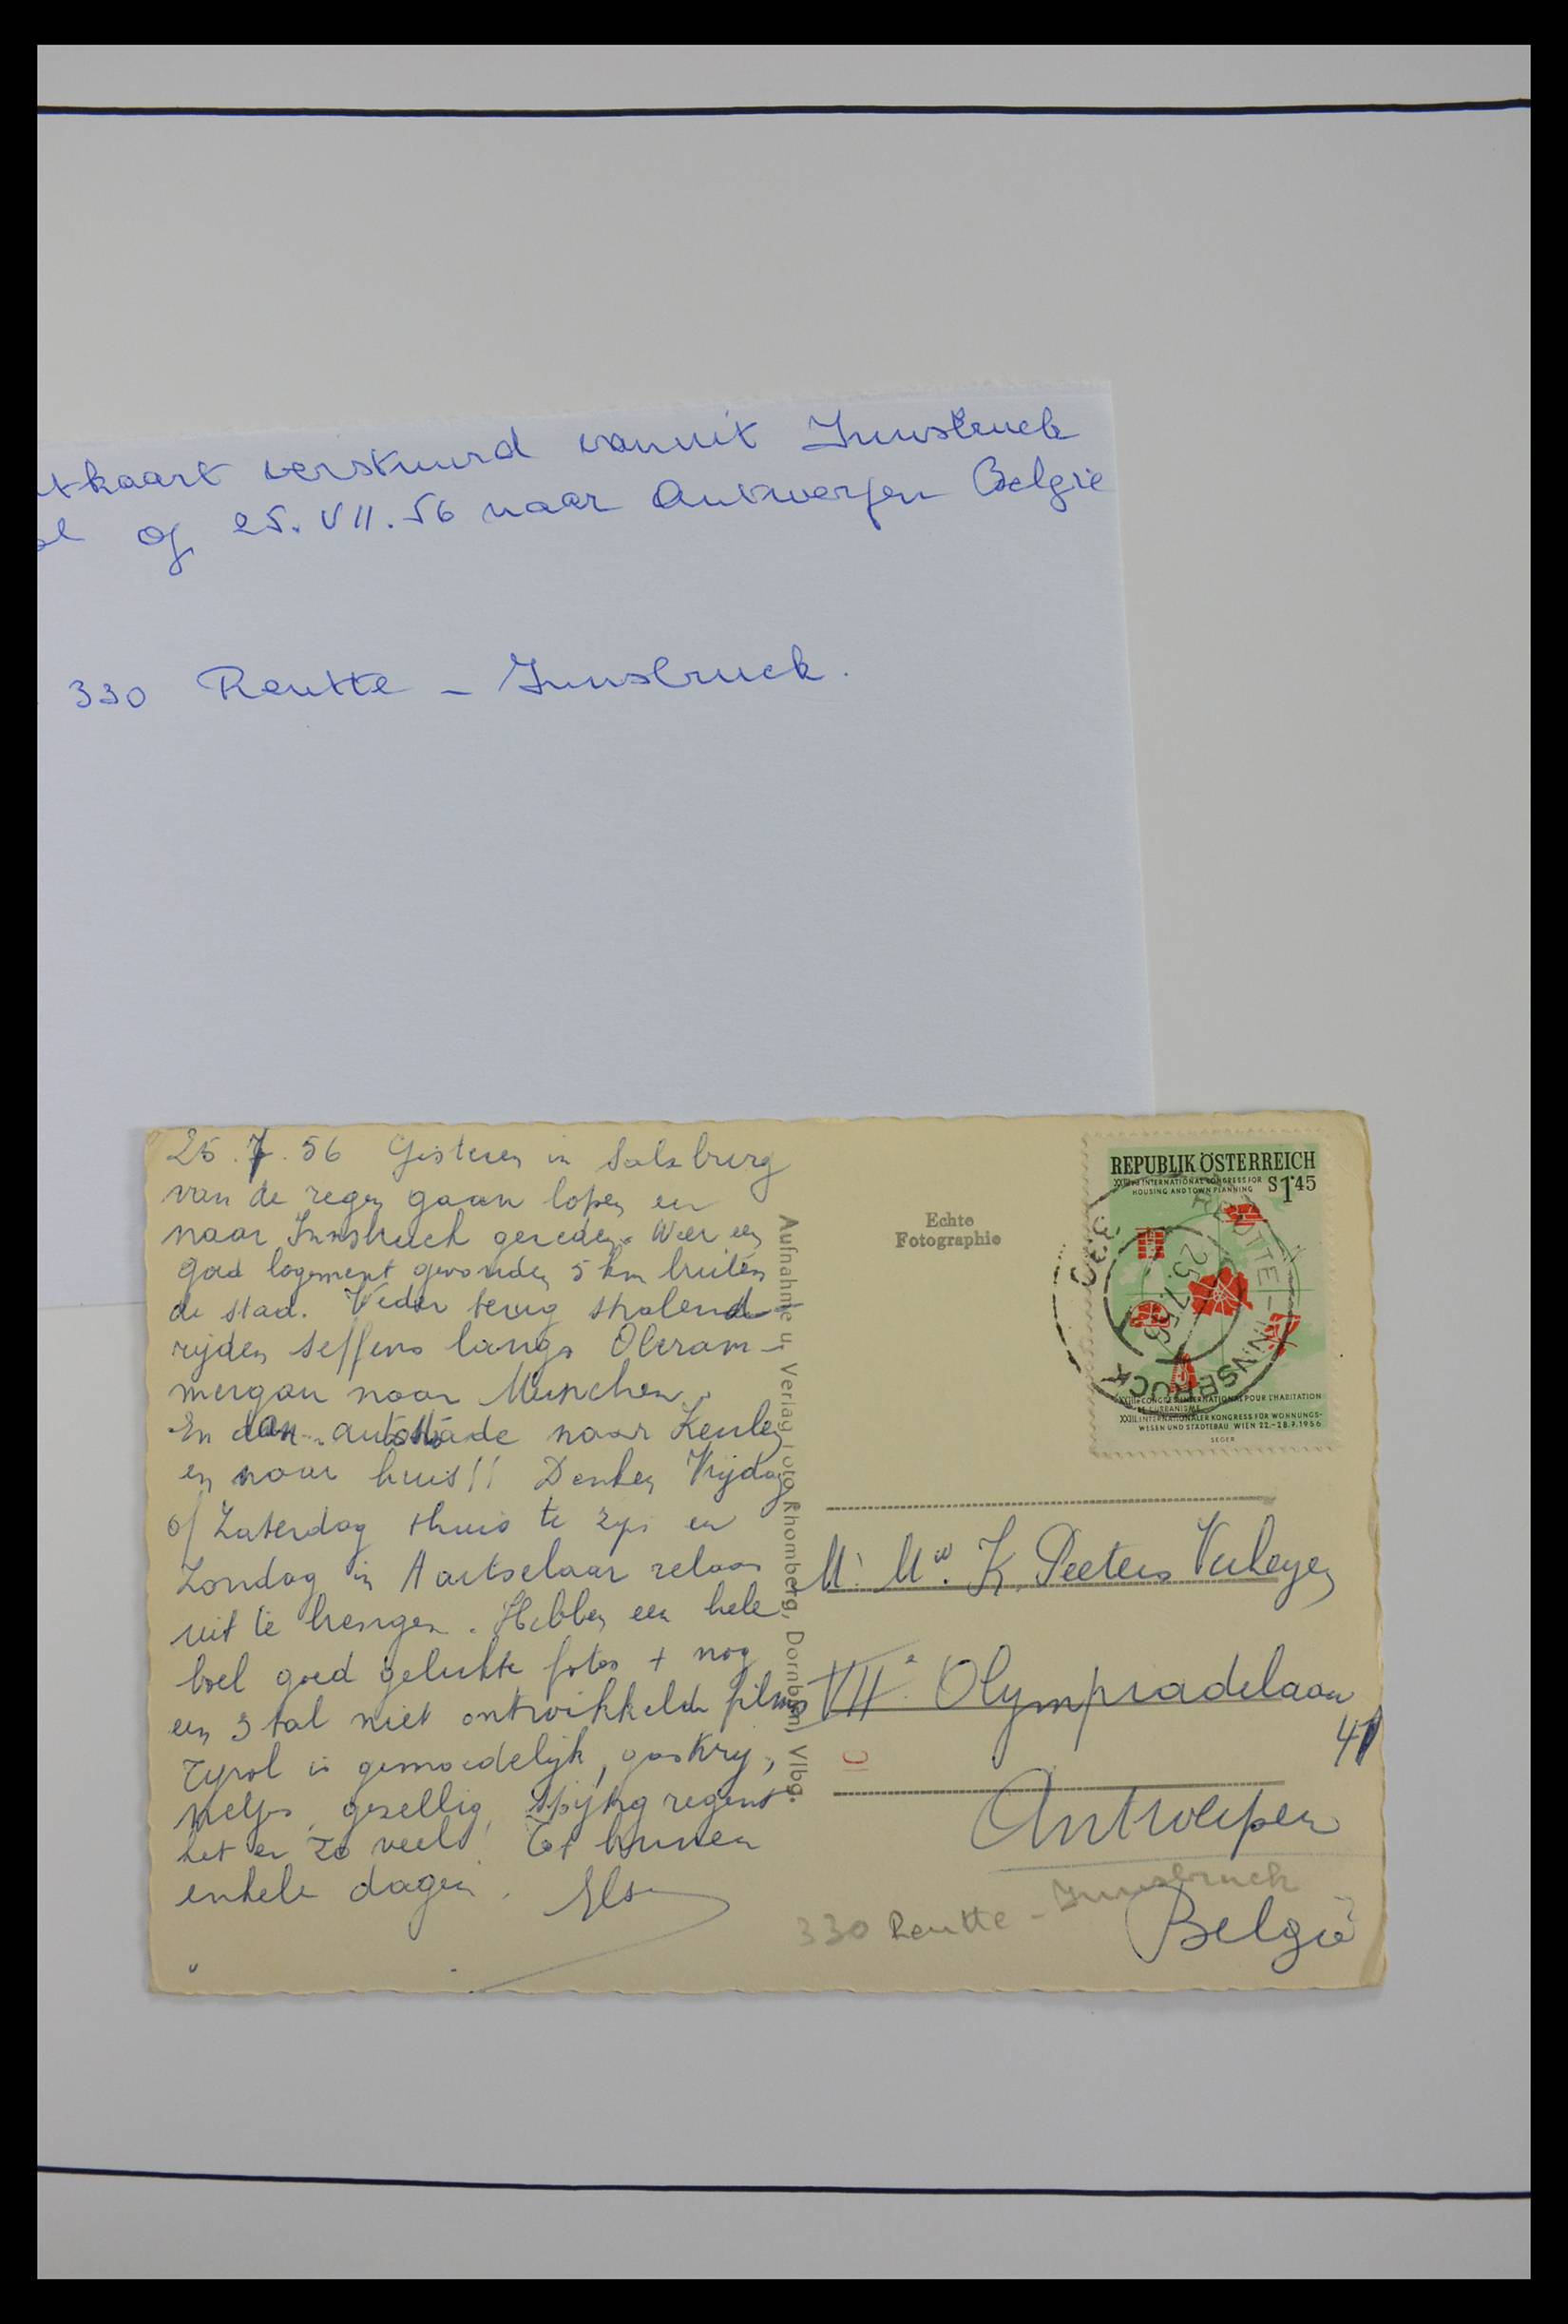 tkaart verstuurd vanuit Innsbruck
op 25.VII.56 naar Antwerpen België
330 Reutte - Innsbruck.
25.7.56 Gisteren in Salzburg
van de regen gaan lopen en
naar Innsbruck gereden. Weer een
goed logement gevonden 5 km buiten
de stad. Weder terug stralend
rijden seffens langs Oberam-
mergau naar Munchen.
En dan autostrade naar Keulen
en naar huis!! Denken Vrijdag
of Zaterdag thuis te zijn en
Zondag in Aartselaar relaas
uit te brengen. Hebben een hele
boel goed gelukte fotos + nog
een 3 tal niet ontwikkelde films
Tyrol is gemoedelijk, gastvrij,
netjes, gezellig, spijtig regent
het er zo veel! Tot binnen
enkele dagen. Else
Aufnahme u. Verlag Foto Rhomberg, Dornbirn, Vlbg.
Echte
Fotographie
REPUBLIK ÖSTERREICH
XXIIIrd INTERNATIONAL CONGRESS FOR
HOUSING AND TOWN PLANNING
S 1·45
330 REUTTE - INNSBRUCK
25.7.56
XXIIIe CONGRÈS INTERNATIONAL POUR L'HABITATION
ET L'URBANISME
XXIII. INTERNATIONALER KONGRESS FÜR WOHNUNGS-
WESEN UND STÄDTEBAU WIEN 22.-28.7.1956
SEGER
Mr Mw. K. Peeters Verheyen
VIIe Olympiadelaan
41
10
Antwerpen
België
330 Reutte - Innsbruck